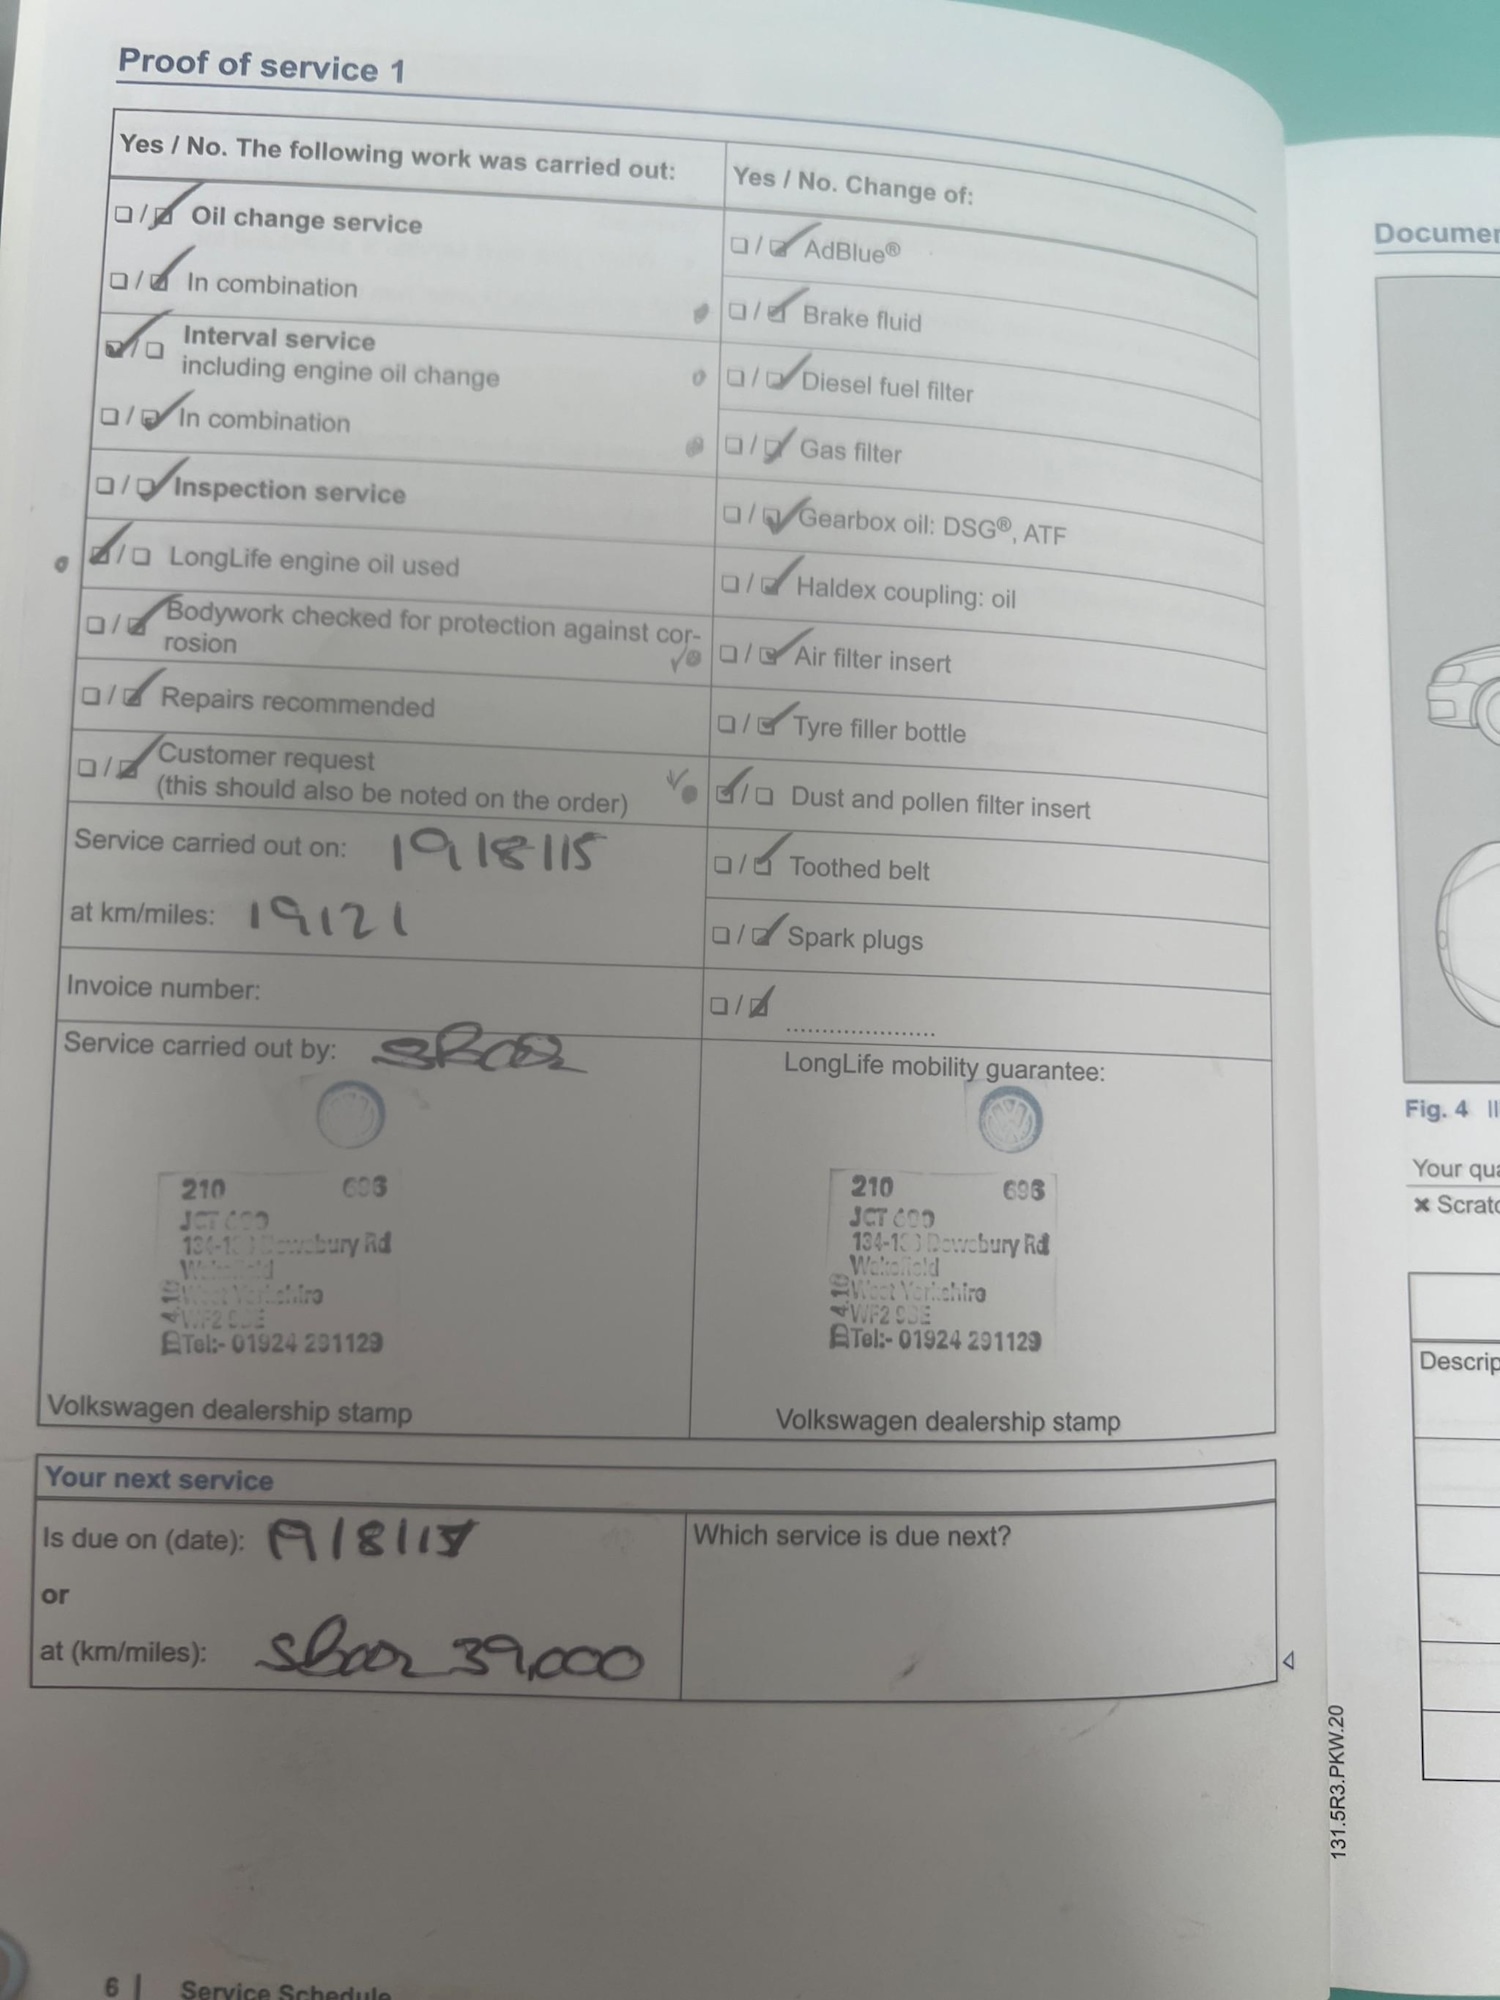 Proof of service 1
Yes / No. The following work was carried out:
Oil change service
In combination
Interval service
including engine oil change
In combination
Inspection service
LongLife engine oil used
Bodywork checked for protection against cor-
rosion
Repairs recommended
Customer request
(this should also be noted on the order)
Service carried out on: 19/8/15
at km/miles: 19121
Invoice number:
Service carried out by:
210 693
JCT 600
Dewsbury Rd
Wakefield
West Yorkshire
WF2
Tel:- 01924 291129
Volkswagen dealership stamp
Yes / No. Change of:
AdBlue®
Brake fluid
Diesel fuel filter
Gas filter
Gearbox oil: DSG®, ATF
Haldex coupling: oil
Air filter insert
Tyre filler bottle
Dust and pollen filter insert
Toothed belt
Spark plugs
....................
LongLife mobility guarantee:
210 693
JCT 600
Dewsbury Rd
Wakefield
West Yorkshire
WF2
Tel:- 01924 291129
Volkswagen dealership stamp
Your next service
Is due on (date):
or
at (km/miles): 39,000
Which service is due next?
131.5R3.PKW.20
6 | Service Schedule
Documen
Fig. 4
Your qua
Scratc
Descrip